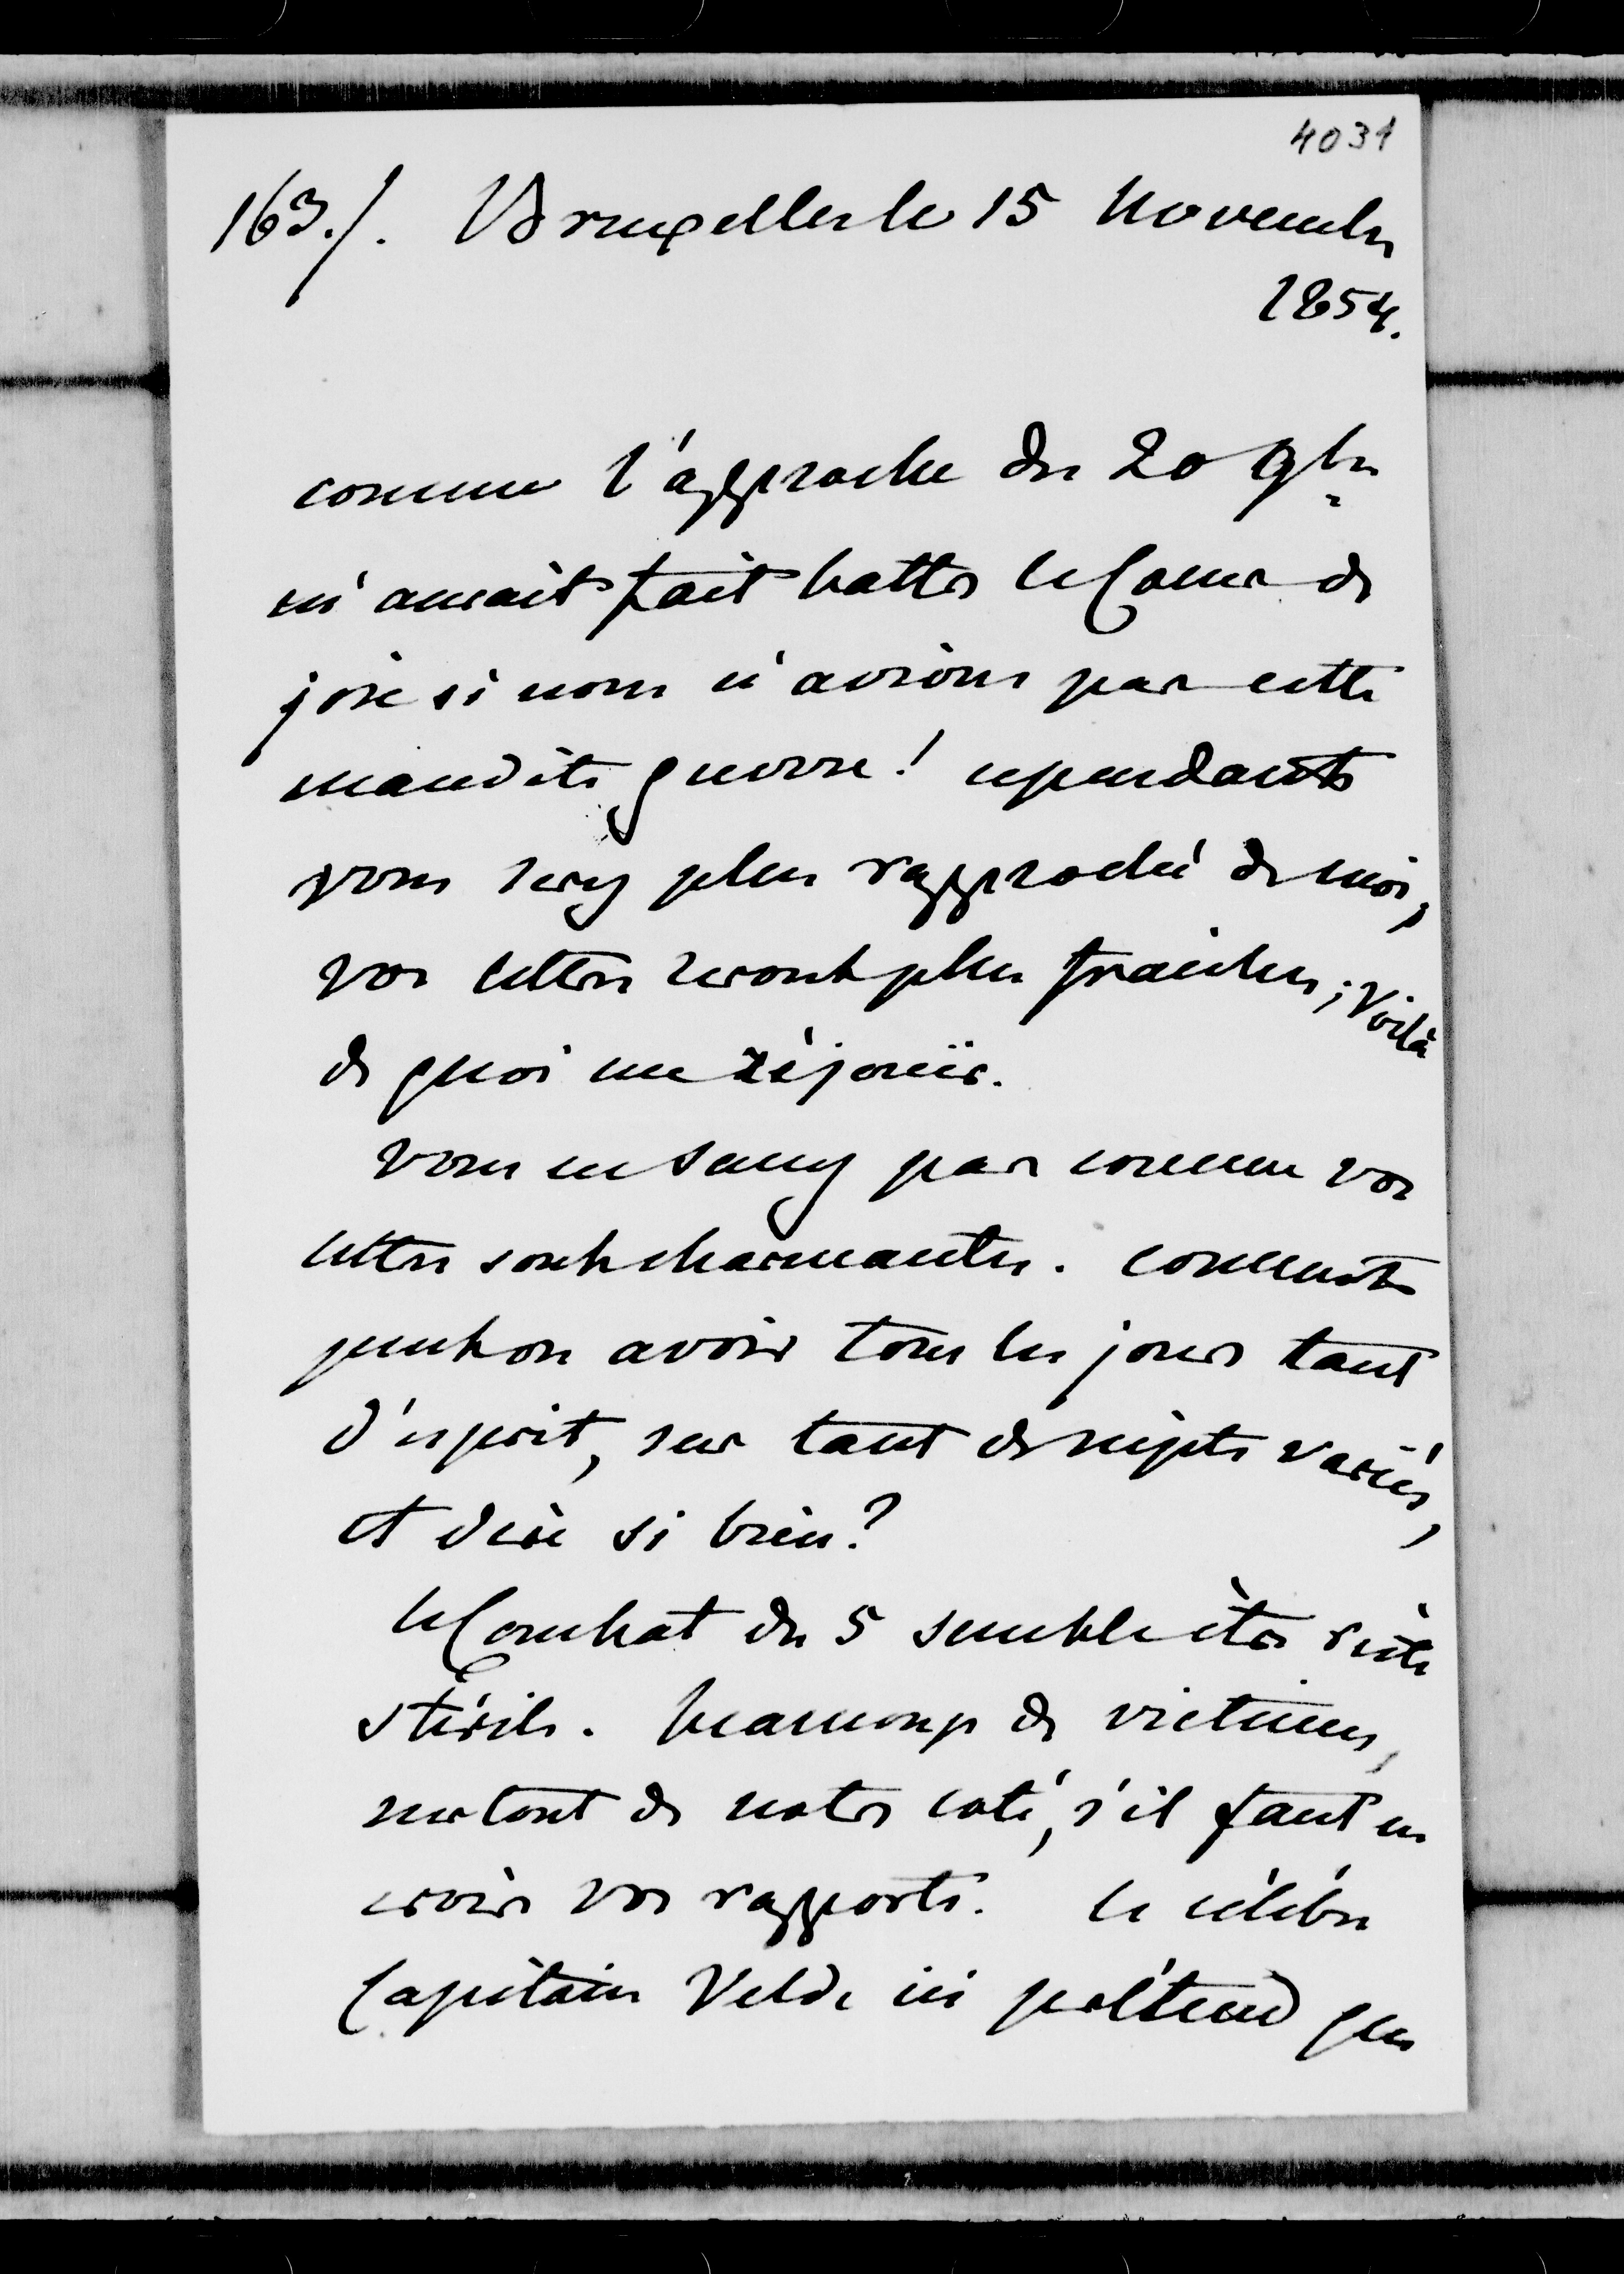 4031
163./. Bruxelles le 15 Novembre
1854.
comme l'approche du 20 9bre
m'aurait fait battre le Coeur de
joie si nous n'avions pas cette
maudite guerre! cependant
vous serez plus rapproché de moi,
vos lettres seront plus fraiches; Voilà
de quoi me réjouir.
vous ne savez pas comme vos
lettres sont charmantes. comment
peut on avoir tous les jours tant
d'esprit, sur tant de sujets variés,
et dire si bien?
le Combat du 5 semble être resté
stérile. beaucoup de victimes,
surtout de notre coté, s'il faut en
croire vos rapports. le célèbre
Capitaine Velde ici prétend que